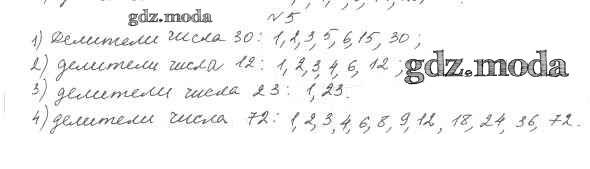 gdz.moda №5
1) Делители числа 30: 1, 2, 3, 5, 6, 15, 30;
2) делители числа 12: 1, 2, 3, 4, 6, 12;
gdz.moda
3) делители числа 23: 1, 23.
4) делители числа 72: 1, 2, 3, 4, 6, 8, 9, 12, 18, 24, 36, 72.